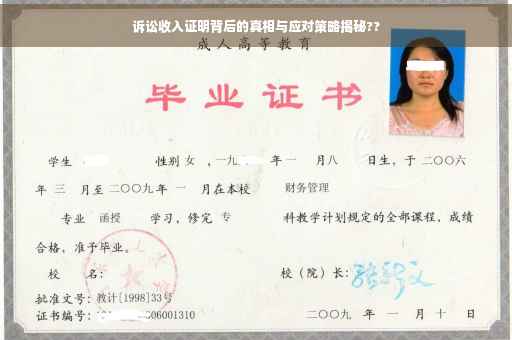 诉讼收入证明背后的真相与应对策略揭秘??
成人高等教育
毕业证书
学生 性别 女 ，一九 年 一 月八 日生，于 二〇〇六
年 三 月至 二〇〇九 年 一 月在本校 财务管理
专业 函授 学习，修完 专 科教学计划规定的全部课程，成绩
合格，准予毕业。
校 名： 校（院）长：
批准文号：教计[1998]33号
证书编号： 06001310 二〇〇九 年 一 月 十 日